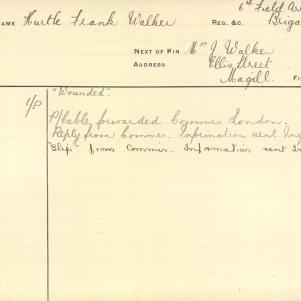 6th Field Ar
NAME Hurtle Frank Walker REG. &C. Briga
NEXT OF KIN Mrs J. Walker
ADDRESS Ellis Street
Magill. FI
1/P "Wounded".
P/Cable forwarded Commis London.
Reply from Commis. Information sent Inq
"Slip" from Commis. Information sent In